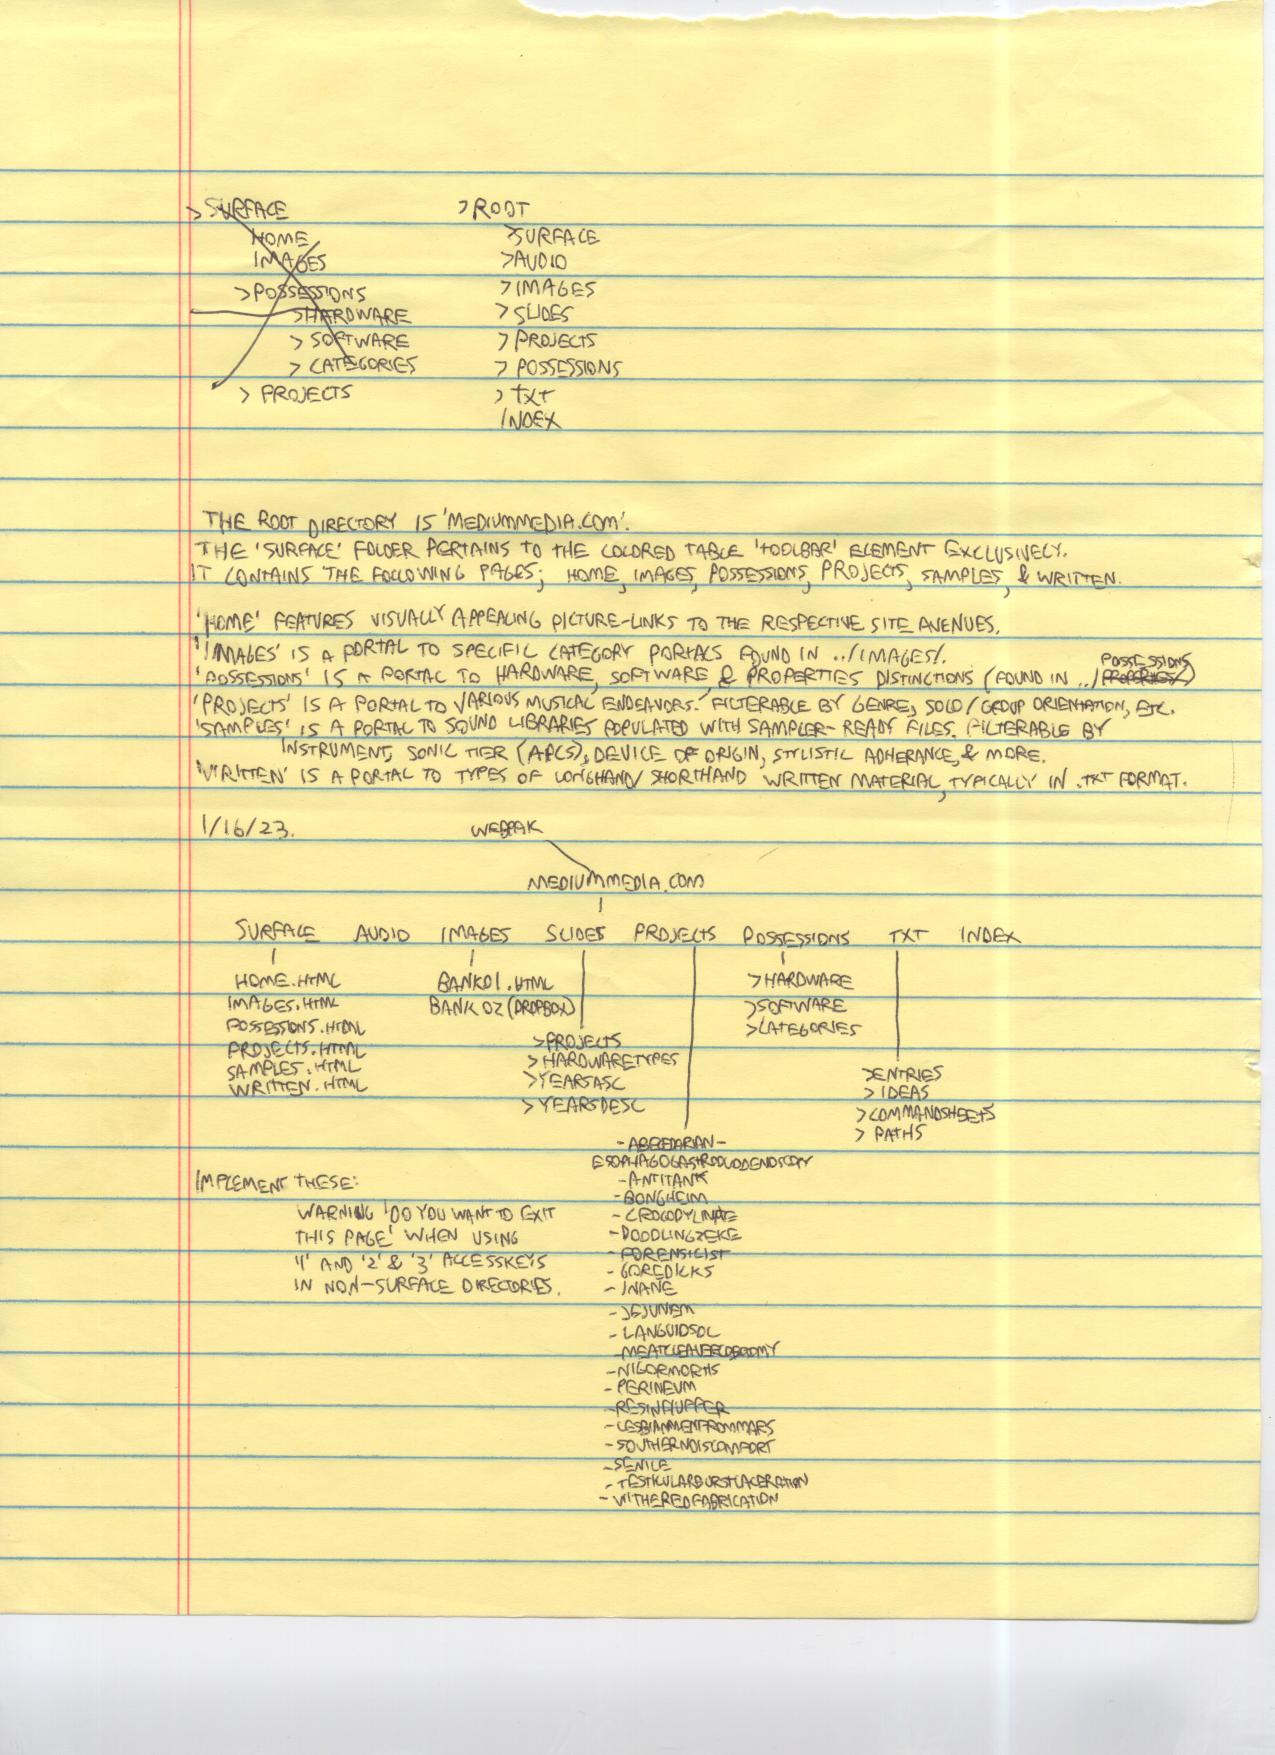 >SURFACE
HOME
IMAGES
>POSSESSIONS
>HARDWARE
> SOFTWARE
> CATEGORIES
> PROJECTS
>ROOT
>SURFACE
>AUDIO
>IMAGES
>SLIDES
>PROJECTS
> POSSESSIONS
> txt
INDEX
THE ROOT DIRECTORY IS 'MEDIUMMEDIA.COM'.
THE 'SURFACE' FOLDER PERTAINS TO THE COLORED TABLE 'TOOLBAR' ELEMENT EXCLUSIVELY.
IT CONTAINS THE FOLLOWING PAGES; HOME, IMAGES, POSSESSIONS, PROJECTS, SAMPLES, & WRITTEN.
'HOME' FEATURES VISUALLY APPEALING PICTURE-LINKS TO THE RESPECTIVE SITE AVENUES.
'IMAGES' IS A PORTAL TO SPECIFIC CATEGORY PORTALS FOUND IN ../IMAGES/.
POSSESSIONS
'POSSESSIONS' IS A PORTAL TO HARDWARE, SOFTWARE & PROPERTIES DISTINCTIONS (FOUND IN ../PROPERTIES/)
'PROJECTS' IS A PORTAL TO VARIOUS MUSICAL ENDEAVORS. FILTERABLE BY GENRE, SOLO/GROUP ORIENTATION, ETC.
'SAMPLES' IS A PORTAL TO SOUND LIBRARIES POPULATED WITH SAMPLER-READY FILES. FILTERABLE BY
INSTRUMENT, SONIC TIER (APCS), DEVICE OF ORIGIN, STYLISTIC ADHERANCE, & MORE.
'WRITTEN' IS A PORTAL TO TYPES OF LONGHAND/SHORTHAND WRITTEN MATERIAL, TYPICALLY IN .TXT FORMAT.
1/16/23.
WEBPAK
MEDIUMMEDIA.COM
SURFACE AUDIO IMAGES SLIDES PROJECTS POSSESSIONS TXT INDEX
HOME.HTML
IMAGES.HTML
POSSESSIONS.HTML
PROJECTS.HTML
SAMPLES.HTML
WRITTEN.HTML
BANK01.HTML
BANK02 (DROPBOX)
>PROJECTS
>HARDWARETYPES
>YEARSASC
>YEARSDESC
>HARDWARE
>SOFTWARE
>CATEGORIES
>ENTRIES
> IDEAS
>COMMANDSHEETS
> PATHS
-ABECEDARIAN-
ESOPHAGOGASTRODUODENOSCOPY
-ANTITANK
-BONGHEIM
-CROCODYLINATE
-DOODLINGZEKE
-FORENSICIST
-GOREDICKS
-INANE
-JEJUNEM
-LANGUIDSOL
-NIGORMORTIS
-PERINEUM
-RESINHUFFER
-LESBIANMENFROMMARS
-SOUTHERNDISCOMFORT
-SENILE
-TESTICULARBURSTLACERATION
-WITHEREDFABRICATION
IMPLEMENT THESE:
WARNING 'DO YOU WANT TO EXIT
THIS PAGE' WHEN USING
'1' AND '2' & '3' ACCESSKEYS
IN NON-SURFACE DIRECTORIES.